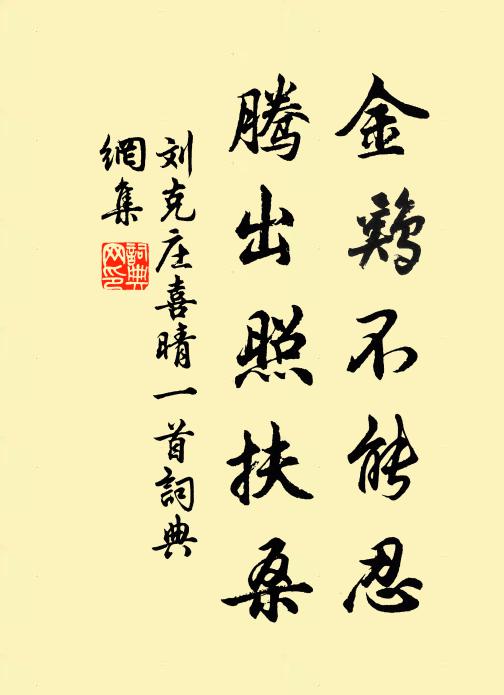 金鷄不能忍
腾出照扶桑
刘克庄喜晴一首詞典
網集
詞典
网印